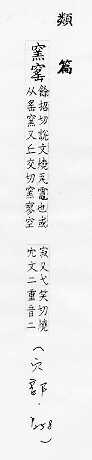 類篇
窯窰
餘招切說文燒瓦竈也或
从䍃窯又丘交切窯寥空
寂又弋笑切燒
穴文二重音二
(穴部.258)